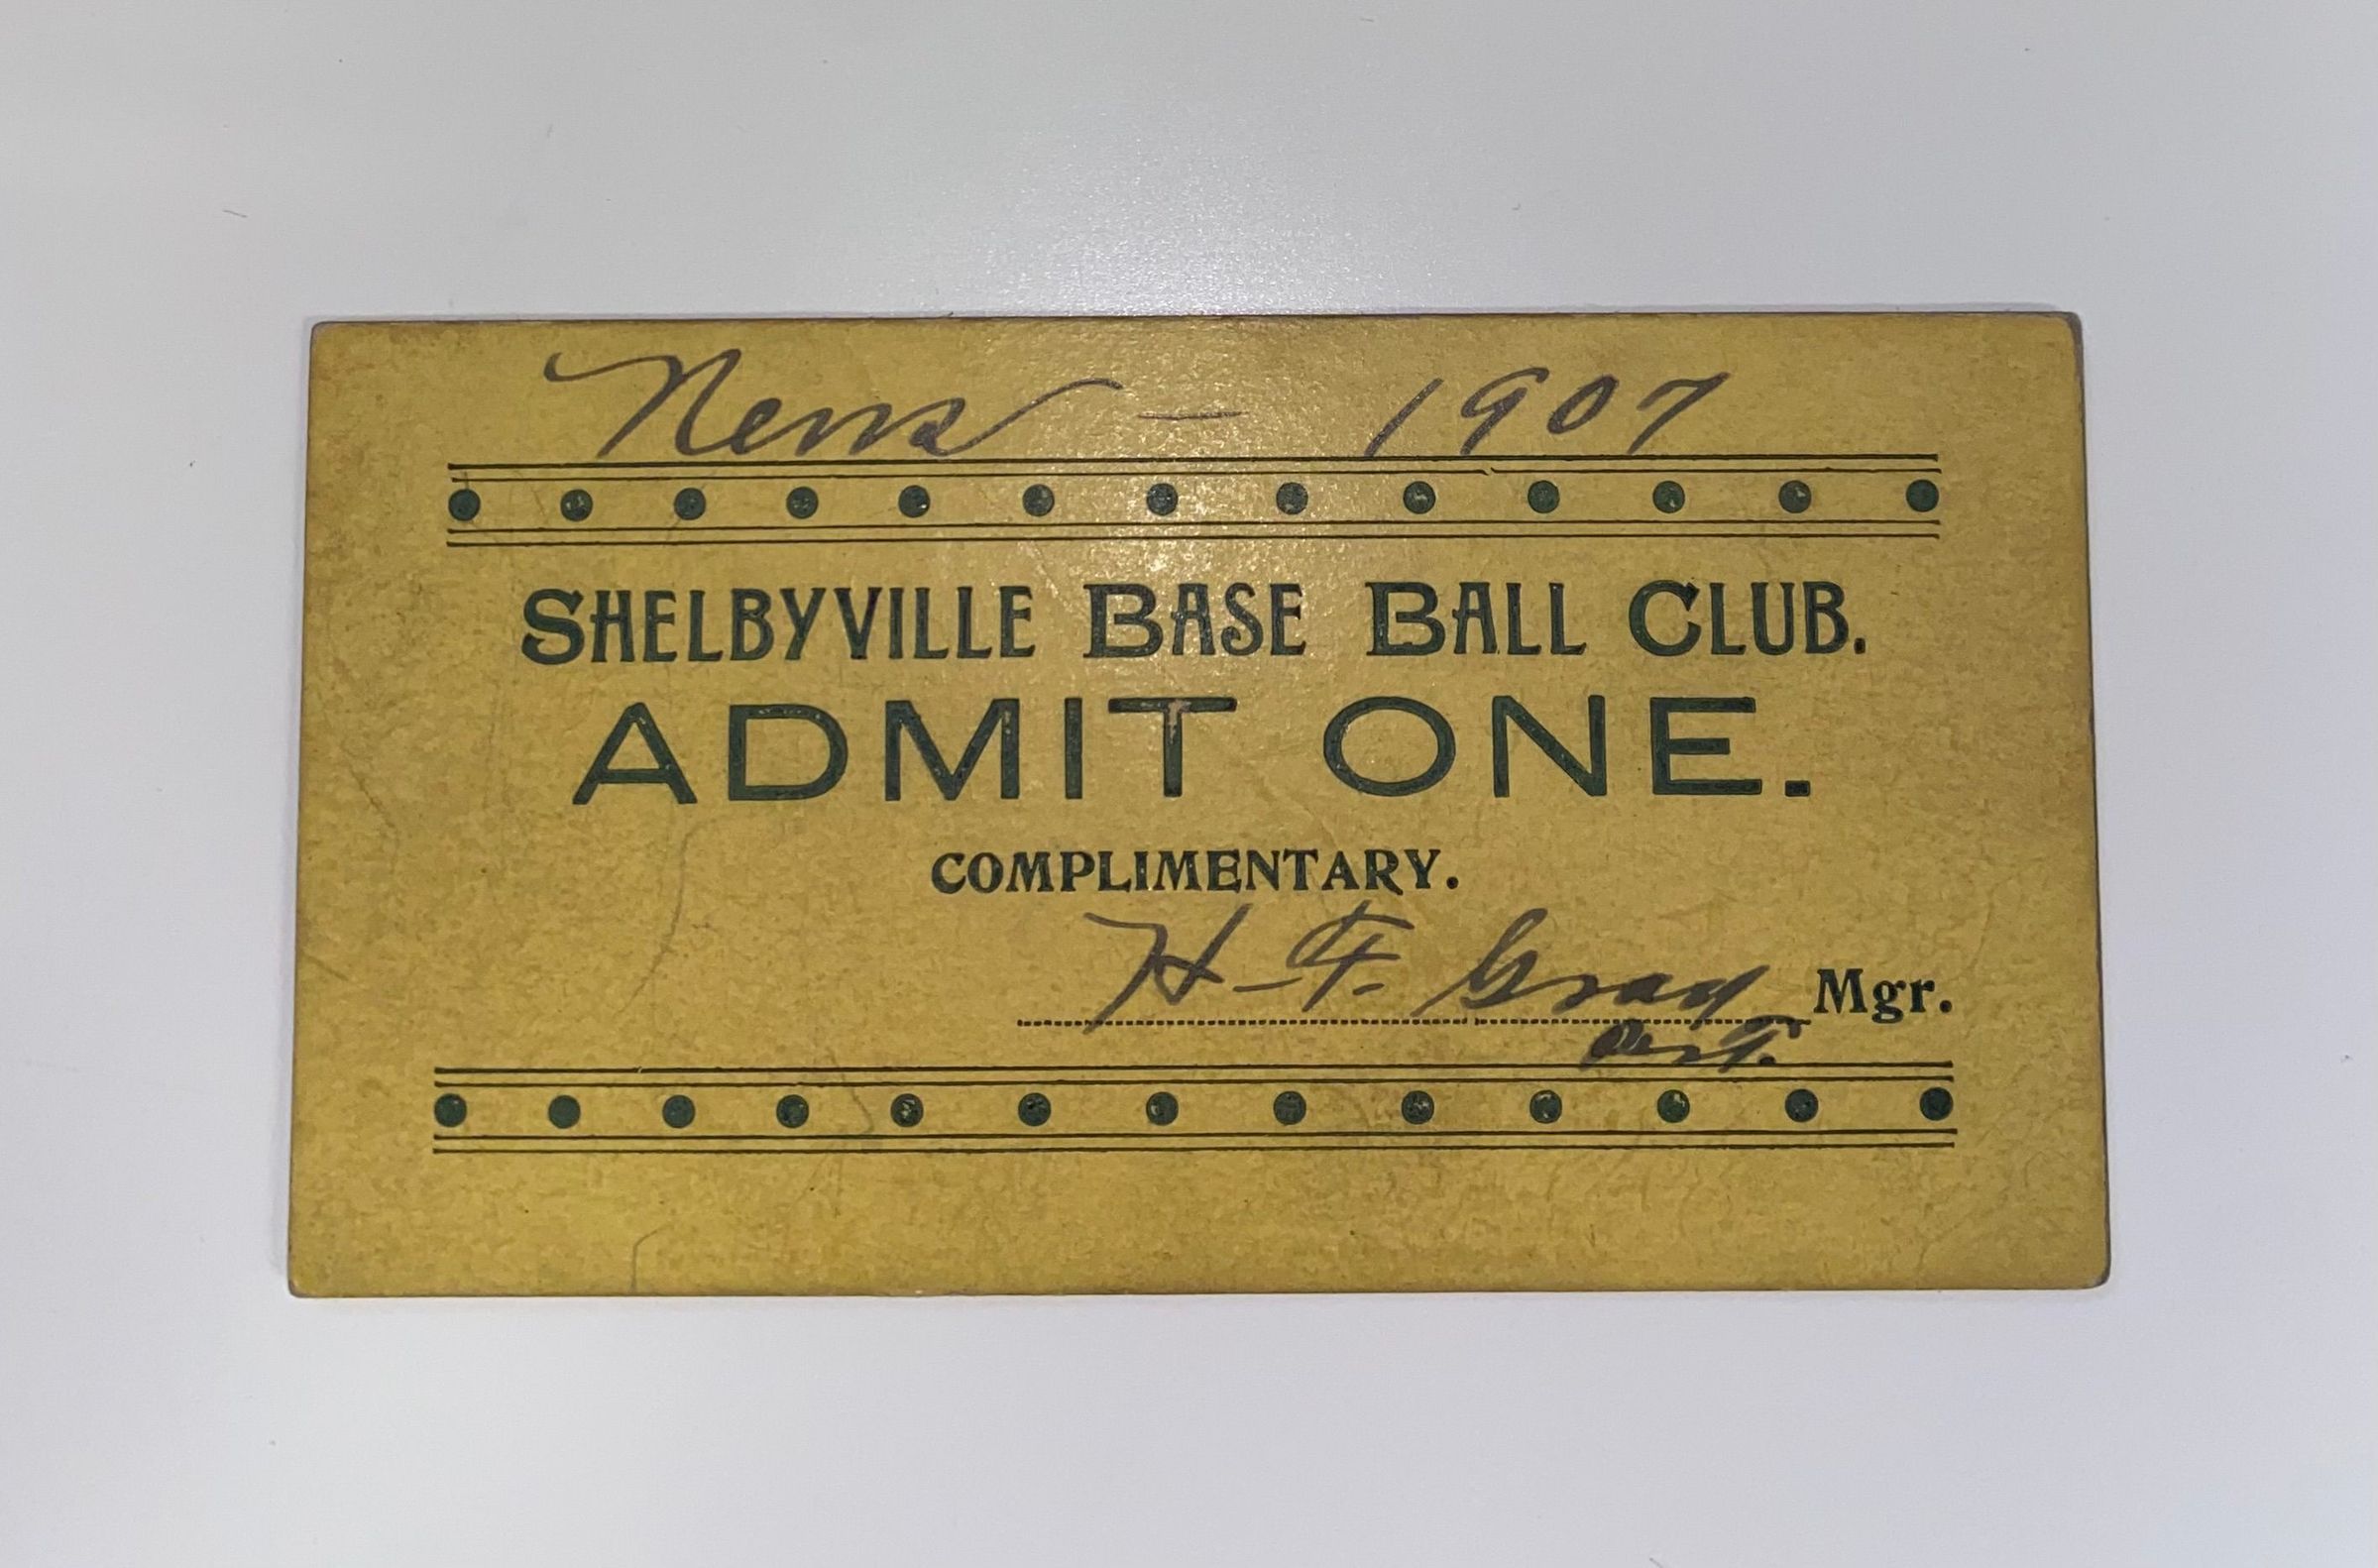 News - 1907
SHELBYVILLE BASE BALL CLUB.
ADMIT ONE.
COMPLIMENTARY.
H. F. Gray Mgr.